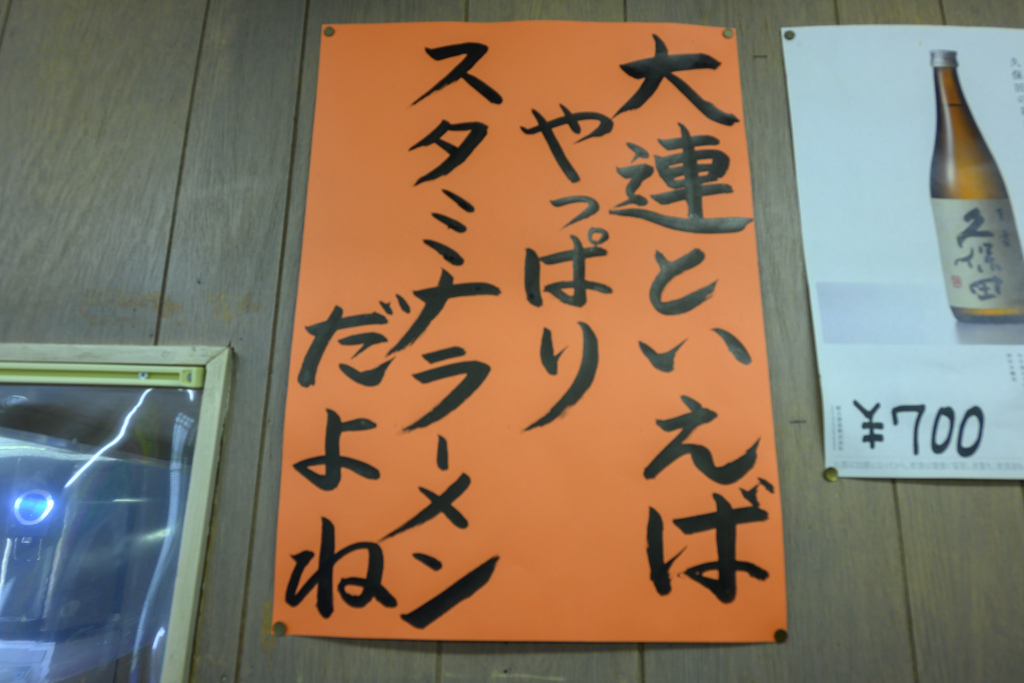 大連といえば
やっぱり
スタミナラーメン
だよね
久保田
¥700